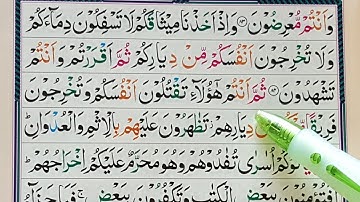 وَاَنْتُمْ مُّعْرِضُوْنَ ۝۸۳ وَاِذْ اَخَذْنَا مِيْثَاقَكُمْ لَا تَسْفِكُوْنَ دِمَآءَكُمْ
وَلَا تُخْرِجُوْنَ اَنْفُسَكُمْ مِّنْ دِيَارِكُمْ ثُمَّ اَقْرَرْتُمْ وَاَنْتُمْ
تَشْهَدُوْنَ ۝۸۴ ثُمَّ اَنْتُمْ هٰٓؤُلَآءِ تَقْتُلُوْنَ اَنْفُسَكُمْ وَتُخْرِجُوْنَ
فَرِيْقًا دِيَارِهِمْ تَظٰهَرُوْنَ عَلَيْهِمْ بِالْاِثْمِ وَالْعُدْوَانِ ؕ
اُسٰرٰى تُفٰدُوْهُمْ وَهُوَ مُحَرَّمٌ عَلَيْكُمْ اِخْرَاجُهُمْ ؕ
اَفَتُؤْمِنُوْنَ بِبَعْضِ الْكِتٰبِ وَتَكْفُرُوْنَ بِبَعْضٍ ۚ فَمَا جَزَآءُ